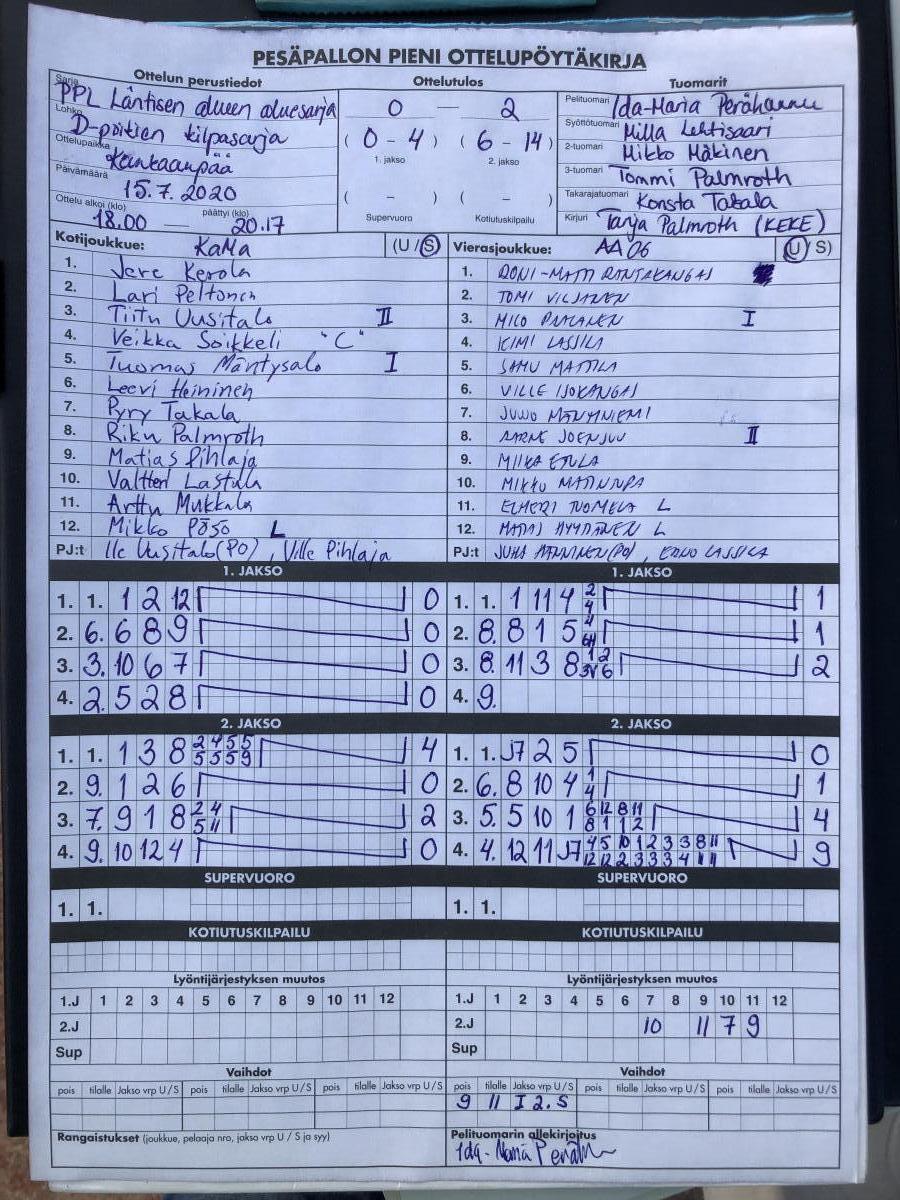 PESÄPALLON PIENI OTTELUPÖYTÄKIRJA
Ottelun perustiedot
Sarja PPL Läntisen alueen aluesarja
Lohko D-poikien kilpasarja
Ottelupaikka Kankaanpää
Päivämäärä 15.7.2020
Ottelu alkoi (klo) 18.00 — päättyi (klo) 20.17
Ottelutulos
0 — 2
(0 - 4) (6 - 14)
1. jakso 2. jakso
( - ) ( - )
Supervuoro Kotiutuskilpailu
Tuomarit
Pelituomari Ida-Maria Perähannu
Syöttötuomari Milla Lehtisaari
2-tuomari Mikko Mäkinen
3-tuomari Tommi Palmroth
Takarajatuomari Konsta Takala
Kirjuri Tanja Palmroth (KEKE)
Kotijoukkue: KaMa (U / S)
1. Jere Kerola
2. Lari Peltonen
3. Tiitu Uusitalo II
4. Veikka Soikkeli "C"
5. Tuomas Mäntysalo I
6. Leevi Heininen
7. Pyry Takala
8. Riku Palmroth
9. Matias Pihlaja
10. Valtteri Lastula
11. Arttu Mukkala
12. Mikko Pösö L
PJ:t Uusitalo (PO), Ville Pihlaja
Vierasjoukkue: AA'06 (U / S)
1. RONI-MATTI RANTAKANGAS
2. TOMI VILJANEN
3. MILO PAALANEN I
4. KIMI LASSILA
5. SAMU MATTILA
6. VILLE ISOKANGAS
7. JUUSO MÄNTYNIEMI
8. AARNE JOENSUU II
9. MIIKA ETULA
10. MIKKO
11. ELMERI TUOMELA L
12. L
PJ:t JUHA MANNINEN (PO), LASSILA
1. JAKSO
1. 1. 1 2 12 0
2. 6. 6 8 9 0
3. 3. 10 6 7 0
4. 2. 5 2 8 0
1. JAKSO
1. 1. 1 11 4 2 4 1
2. 8. 8 1 5 4 1
3. 8. 11 3 8 1 2 2
4. 9.
2. JAKSO
1. 1. 1 3 8 2 4 5 5 4
5 5 5 9
2. 9. 1 2 6 0
3. 7. 9 1 8 2 4 2
5 11
4. 9. 10 12 4 0
2. JAKSO
1. 1. J7 2 5 0
2. 6. 8 10 4 1 4 1
3. 5. 5 10 1 6 12 8 11 4
8 1 1 2
4. 4. 12 11 J7 4 5 10 1 2 3 3 8 11 9
12 12 2 3 3 3 4 11 11
SUPERVUORO
1. 1.
SUPERVUORO
1. 1.
KOTIUTUSKILPAILU
KOTIUTUSKILPAILU
Lyöntijärjestyksen muutos
1.J 1 2 3 4 5 6 7 8 9 10 11 12
2.J
Sup
Lyöntijärjestyksen muutos
1.J 1 2 3 4 5 6 7 8 9 10 11 12
2.J 10 11 7 9
Sup
Vaihdot
pois tilalle Jakso vrp U/S pois tilalle Jakso vrp U/S pois tilalle Jakso vrp U/S
Vaihdot
pois tilalle Jakso vrp U/S pois tilalle Jakso vrp U/S pois tilalle Jakso vrp U/S
9 11 I 2. S
Rangaistukset (joukkue, pelaaja nro, jakso vrp U / S ja syy)
Pelituomarin allekirjoitus
Ida-Maria